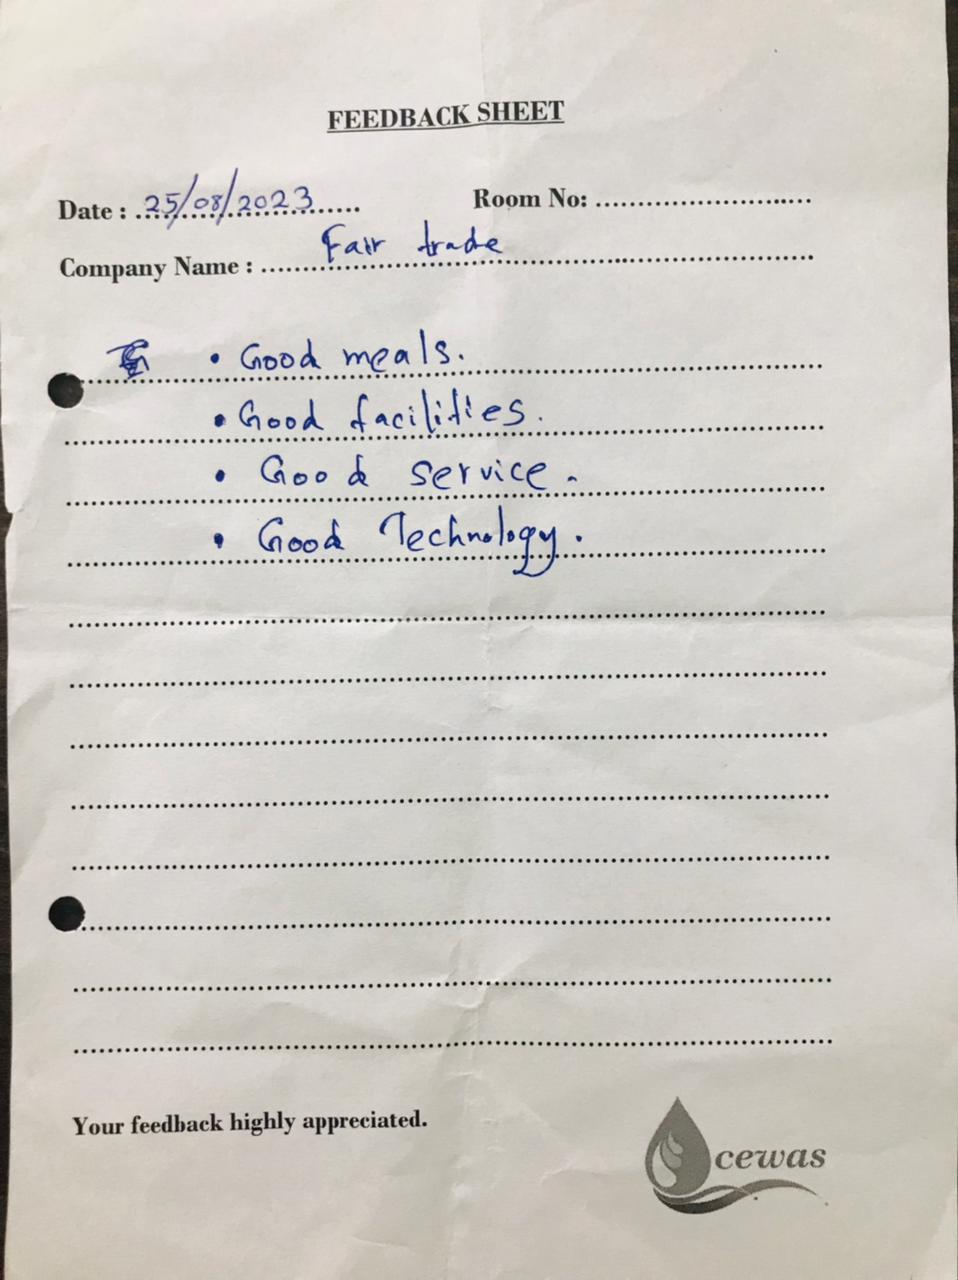 FEEDBACK SHEET
Date : 25/08/2023 Room No: ............................
Company Name : Fair trade
• Good meals.
• Good facilities.
• Good service.
• Good Technology.
Your feedback highly appreciated.
cewas